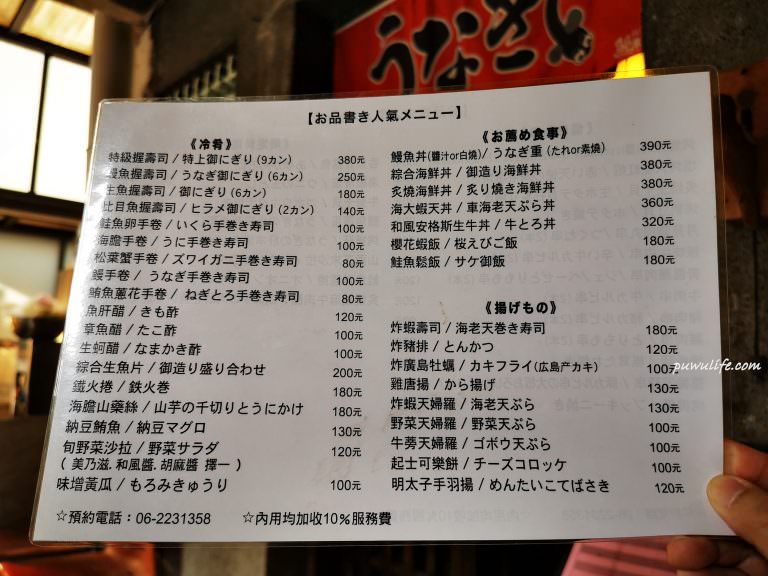 うなぎ
【お品書き人氣メニュー】
《冷肴》
特級握壽司 / 特上御にぎり (9カン) 380元
鰻魚握壽司 / うなぎ御にぎり (6カン) 250元
生魚握壽司 / 御にぎり (6カン) 180元
比目魚握壽司 / ヒラメ御にぎり (2カン) 140元
鮭魚卵手卷 / いくら手巻き寿司 100元
海膽手卷 / うに手巻き寿司 100元
松葉蟹手卷 / ズワイガニ手巻き寿司 80元
鰻手卷 / うなぎ手巻き寿司 100元
鮪魚蔥花手卷 / ねぎとろ手巻き寿司 80元
魚肝醋 / きも酢 120元
章魚醋 / たこ酢 100元
生蚵醋 / なまかき酢 100元
綜合生魚片 / 御造り盛り合わせ 200元
鐵火捲 / 鉄火巻 180元
海膽山藥絲 / 山芋の千切りとうにかけ 180元
納豆鮪魚 / 納豆マグロ 130元
旬野菜沙拉 / 野菜サラダ 120元
( 美乃滋. 和風醬. 胡麻醬 擇一 )
味增黃瓜 / もろみきゅうり 100元
☆預約電話：06-2231358 ☆內用均加收10%服務費
《お薦め食事》
鰻魚丼(醬汁or白燒) / うなぎ重 (たれor素焼) 390元
綜合海鮮丼 / 御造り海鮮丼 380元
炙燒海鮮丼 / 炙り焼き海鮮丼 380元
海大蝦天丼 / 車海老天ぷら丼 360元
和風安格斯生牛丼 / 牛とろ丼 320元
櫻花蝦飯 / 桜えびご飯 180元
鮭魚鬆飯 / サケ御飯 180元
《揚げもの》
炸蝦壽司 / 海老天巻き寿司 180元
炸豬排 / とんかつ 120元
炸廣島牡蠣 / カキフライ(広島产カキ) 100元
雞唐揚 / から揚げ 130元
炸蝦天婦羅 / 海老天ぷら 130元
野菜天婦羅 / 野菜天ぷら 100元
牛蒡天婦羅 / ゴボウ天ぷら 100元
起士可樂餅 / チーズコロッケ 100元
明太子手羽揚 / めんたいこてばさき 120元
puwulife.com